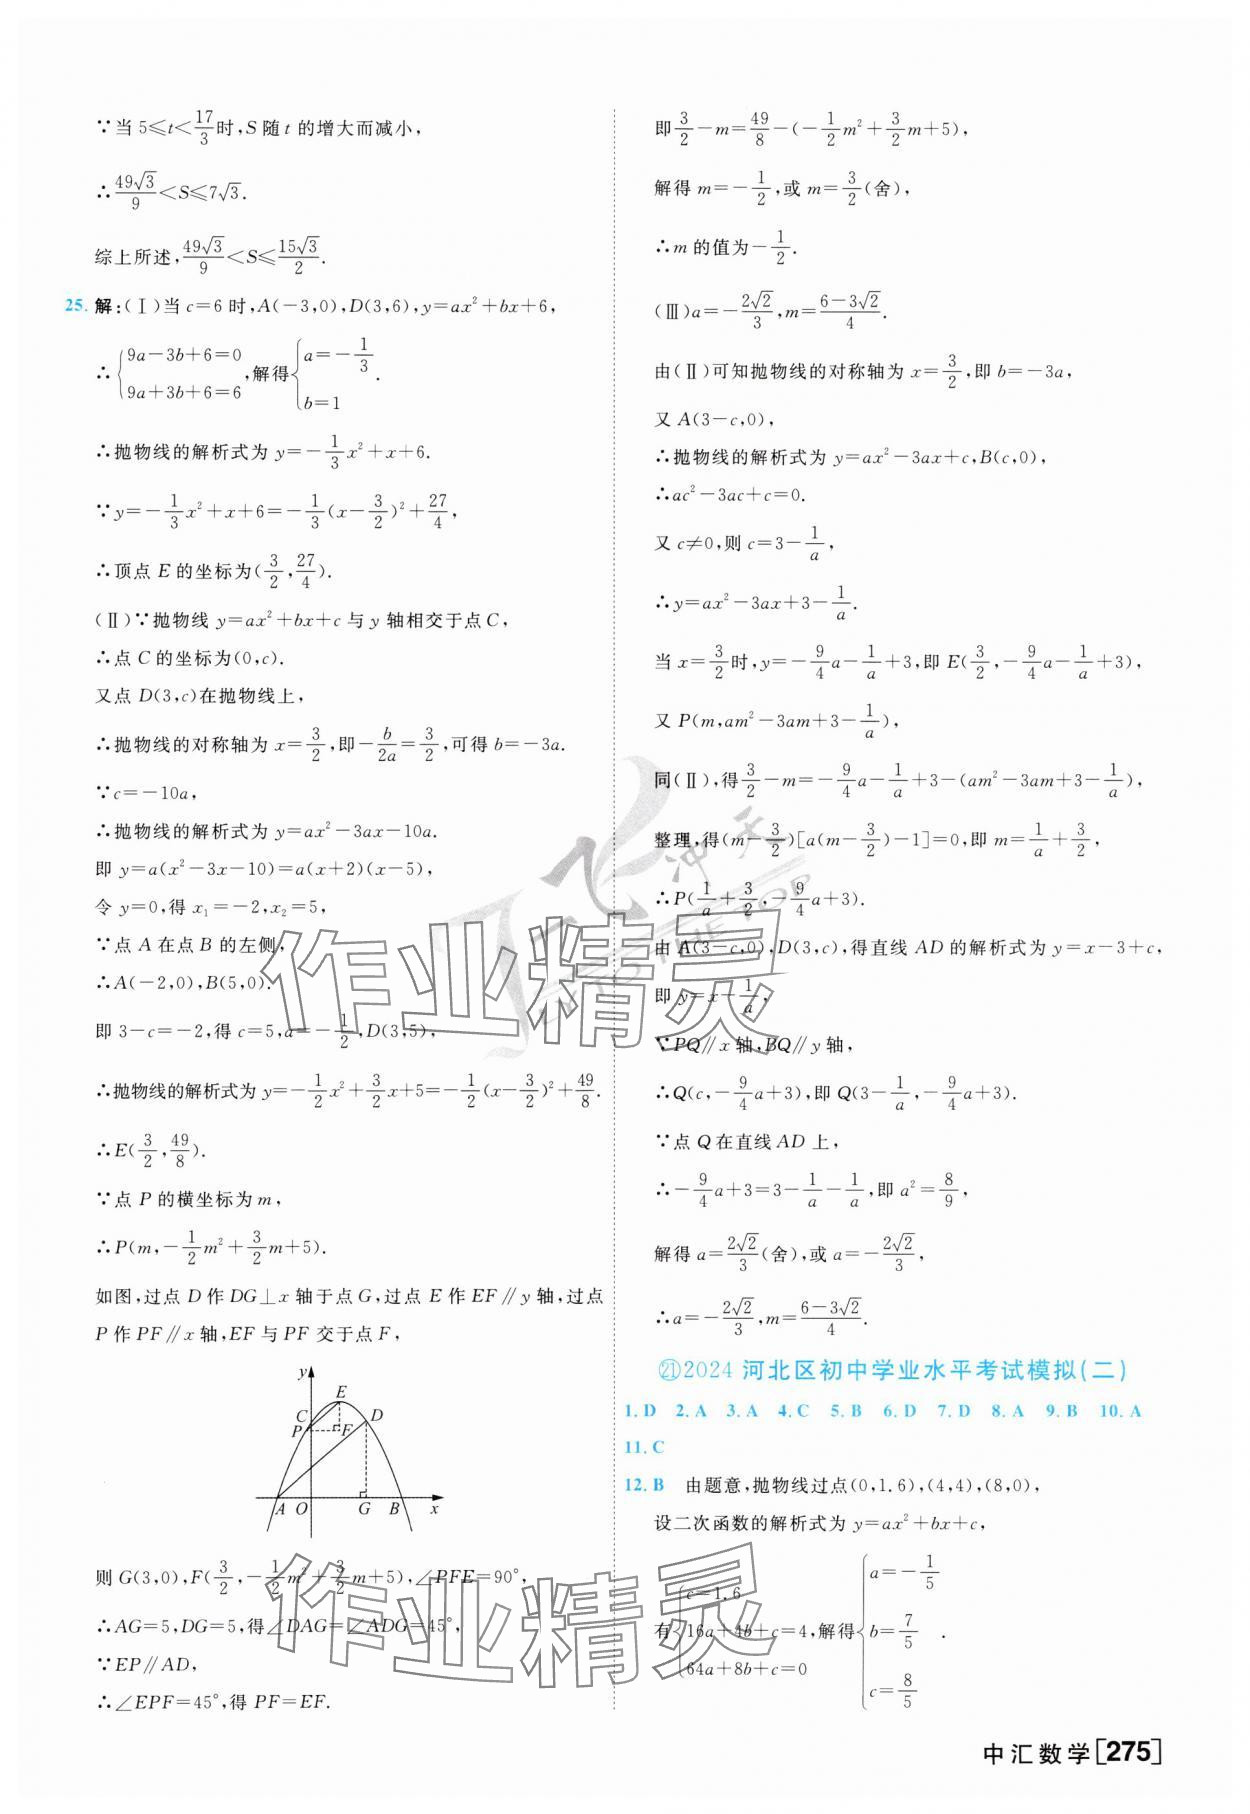 ∵当 5≤t<17/3时,S 随 t 的增大而减小,
∴49√3/9<S≤7√3.
综上所述,49√3/9<S≤15√3/2.
25. 解:(Ⅰ)当 c=6 时,A(-3,0),D(3,6),y=ax²+bx+6,
∴{9a-3b+6=0 9a+3b+6=6,解得{a=-1/3 b=1.
∴抛物线的解析式为 y=-1/3x²+x+6.
∵y=-1/3x²+x+6=-1/3(x-3/2)²+27/4,
∴顶点 E 的坐标为(3/2,27/4).
(Ⅱ)∵抛物线 y=ax²+bx+c 与 y 轴相交于点C,
∴点 C 的坐标为(0,c).
又点 D(3,c)在抛物线上,
∴抛物线的对称轴为 x=3/2,即-b/2a=3/2,可得 b=-3a.
∵c=-10a,
∴抛物线的解析式为 y=ax²-3ax-10a.
即 y=a(x²-3x-10)=a(x+2)(x-5),
令 y=0,得 x₁=-2,x₂=5,
∵点 A 在点 B 的左侧,
∴A(-2,0),B(5,0).
即 3-c=-2,得 c=5,a=-1/2,D(3,5),
∴抛物线的解析式为 y=-1/2x²+3/2x+5=-1/2(x-3/2)²+49/8.
∴E(3/2,49/8).
∵点 P 的横坐标为 m,
∴P(m,-1/2m²+3/2m+5).
如图,过点 D 作 DG⊥x 轴于点 G,过点 E 作 EF∥y 轴,过点
P 作 PF∥x 轴,EF 与 PF 交于点 F,
y
E
C
D
P
F
A O G B x
则 G(3,0),F(3/2,-1/2m²+3/2m+5),∠PFE=90°,
∴AG=5,DG=5,得∠DAG=∠ADG=45°,
∵EP∥AD,
∴∠EPF=45°,得 PF=EF.
即3/2-m=49/8-(-1/2m²+3/2m+5),
解得 m=-1/2,或 m=3/2(舍),
∴m 的值为-1/2.
(Ⅲ)a=-2√2/3,m=6-3√2/4.
由(Ⅱ)可知抛物线的对称轴为 x=3/2,即 b=-3a,
又 A(3-c,0),
∴抛物线的解析式为 y=ax²-3ax+c,B(c,0),
∴ac²-3ac+c=0.
又 c≠0,则 c=3-1/a,
∴y=ax²-3ax+3-1/a.
当 x=3/2时,y=-9/4a-1/a+3,即 E(3/2,-9/4a-1/a+3),
又 P(m,am²-3am+3-1/a),
同(Ⅱ),得3/2-m=-9/4a-1/a+3-(am²-3am+3-1/a),
整理,得(m-3/2)[a(m-3/2)-1]=0,即 m=1/a+3/2,
∴P(1/a+3/2,-9/4a+3).
由 A(3-c,0),D(3,c),得直线 AD 的解析式为 y=x-3+c,
即 y=x-1/a,
∵PQ∥x 轴,BQ∥y 轴,
∴Q(c,-9/4a+3),即 Q(3-1/a,-9/4a+3).
∵点 Q 在直线 AD 上,
∴-9/4a+3=3-1/a-1/a,即 a²=8/9,
解得 a=2√2/3(舍),或 a=-2√2/3,
∴a=-2√2/3,m=6-3√2/4.
㉑2024 河北区初中学业水平考试模拟(二)
1. D 2. A 3. A 4. C 5. B 6. D 7. D 8. A 9. B 10. A
11. C
12. B 由题意,抛物线过点(0,1.6),(4,4),(8,0),
设二次函数的解析式为 y=ax²+bx+c,
有{c=1.6 16a+4b+c=4 64a+8b+c=0,解得{a=-1/5 b=7/5 c=8/5.
中汇数学[275]
作业精灵
作业精灵
一飞冲天